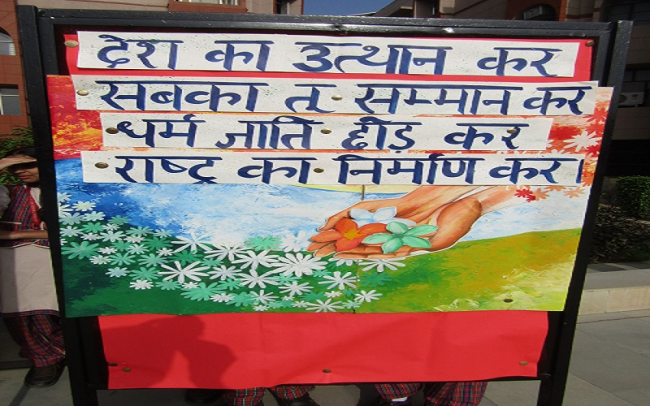 देश का उत्थान कर
सबका तू सम्मान कर
धर्म जाति छोड़ कर
राष्ट्र का निर्माण कर।